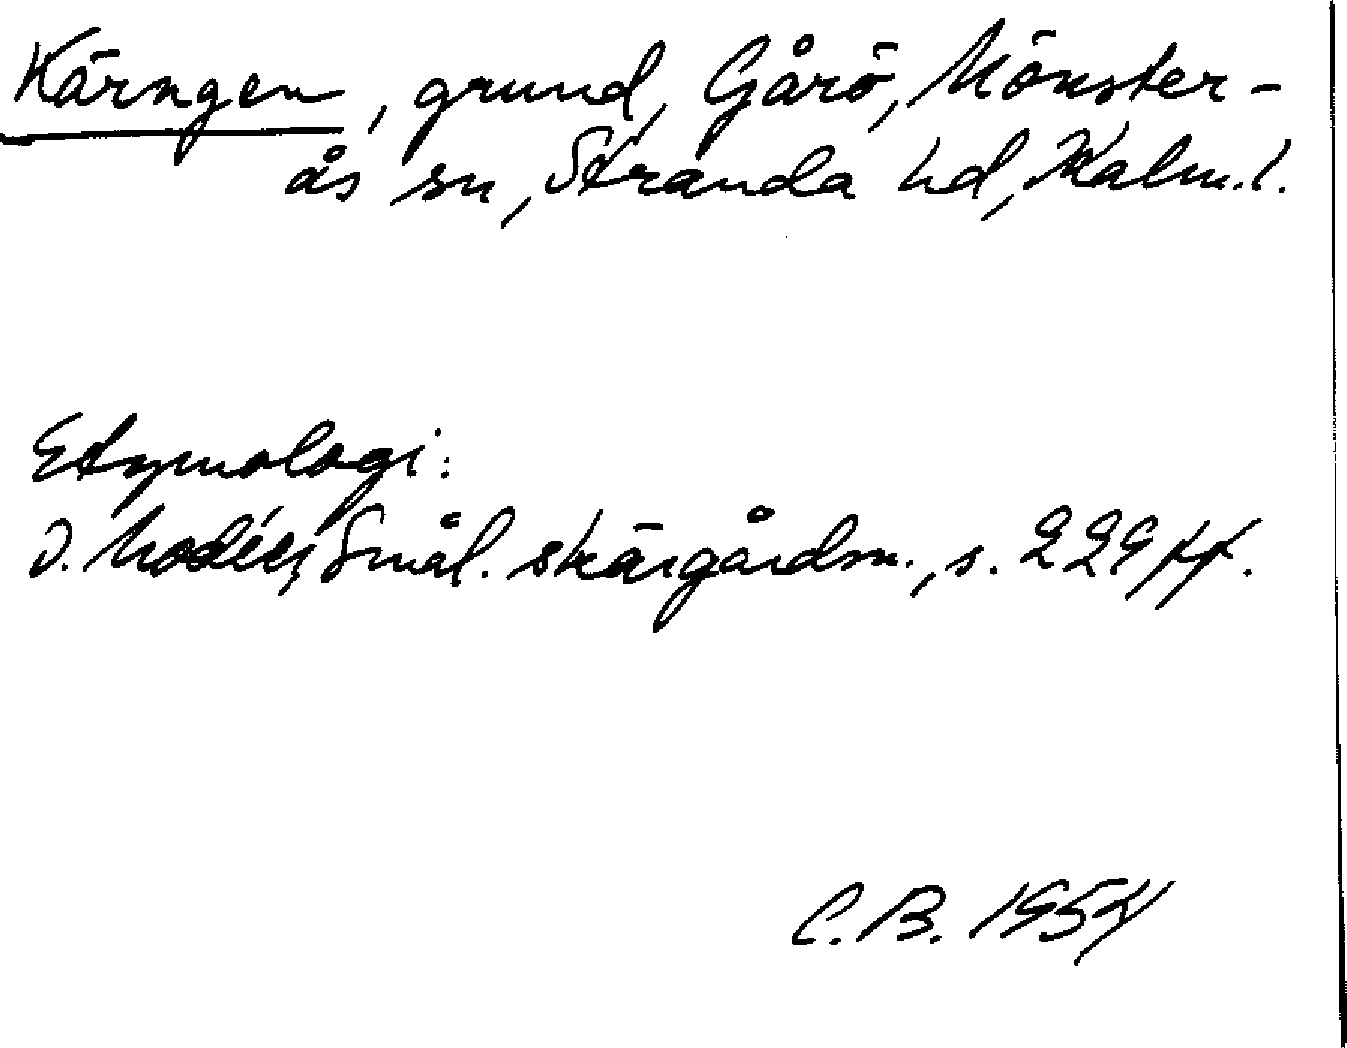 Kärngen, grund, Gårö, Mönster-
ås sn, Stranda hd, Kalm. l.
Etymologi:
I. Modéer, Smål. skärgårdsn., s. 229 ff.
C. B. 1954